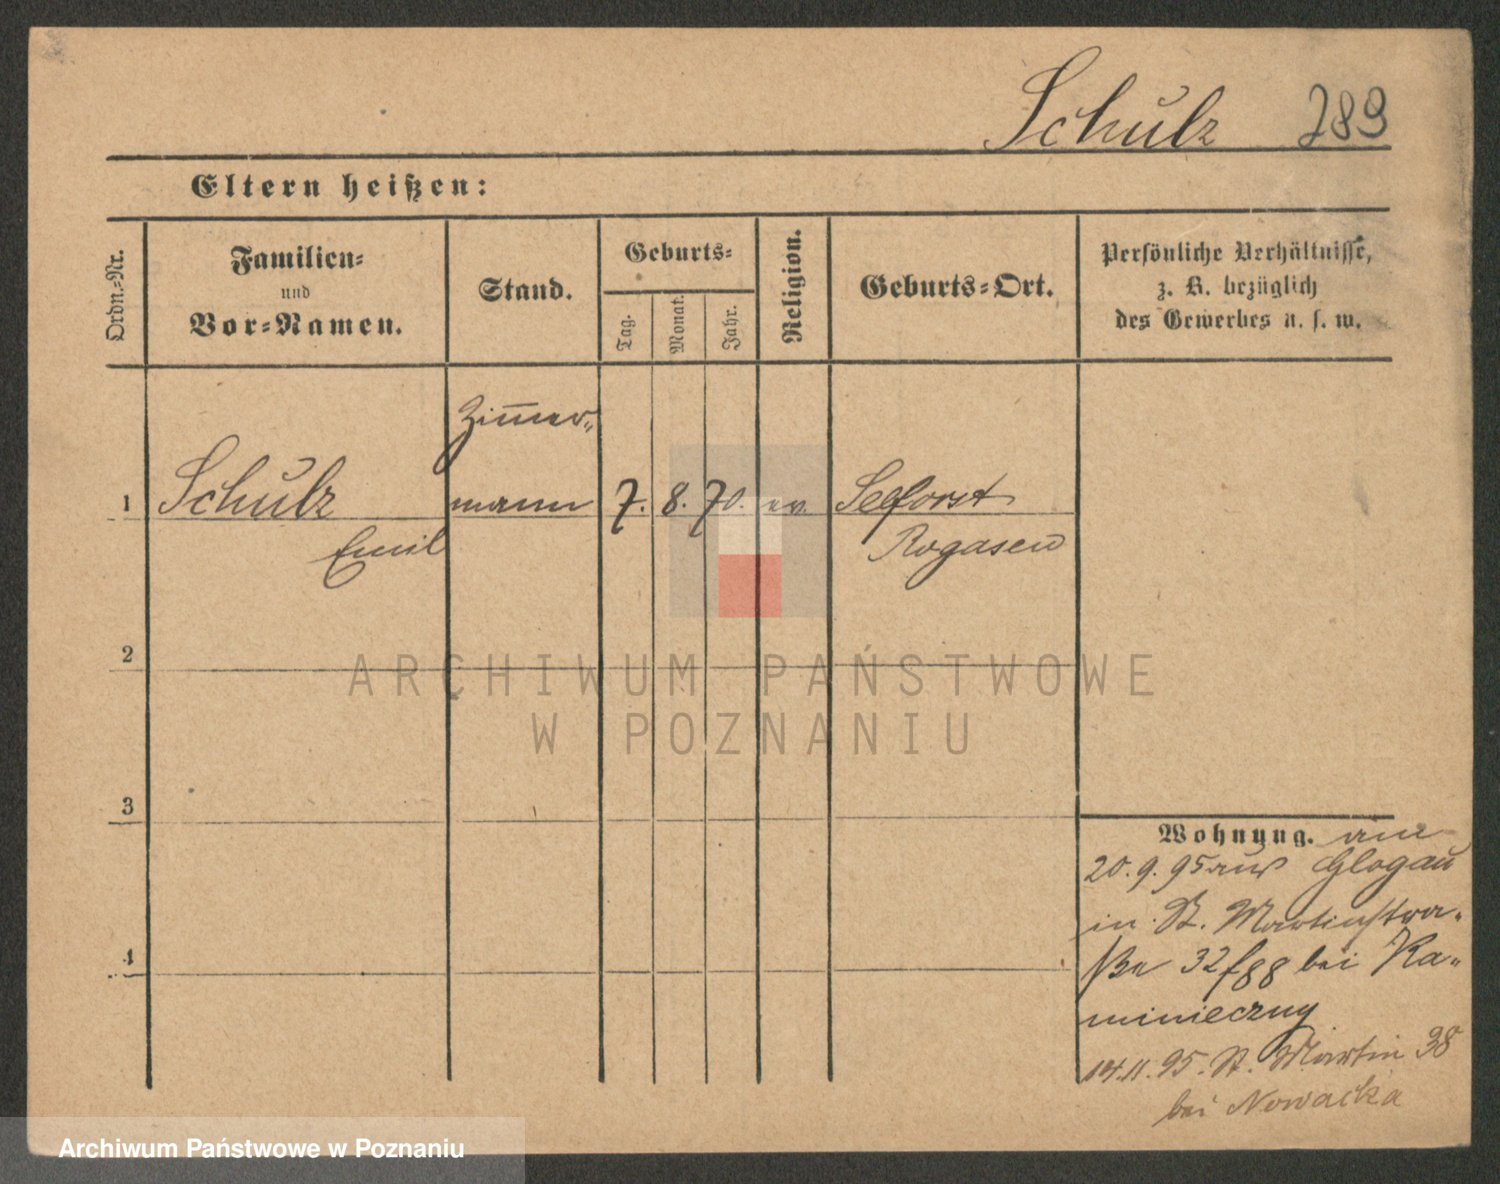 Schulz 789
Eltern heißen:
Ordn.-Nr.
Familien-
und
Vor-Namen.
Stand.
Geburts-
Tag.
Monat.
Jahr.
Religion.
Geburts-Ort.
Persönliche Verhältnisse,
z. B. bezüglich
des Gewerbes u. s. w.
Zim̅er-
1 Schulz mann 7. 8. 70. ev. Seeforst
Emil Rogasen
2
3
4
Wohnung. am
20. 9. 95 aus Glogau
in St. Martinstra-
ße 32 bei Ka-
minieczny
14.11.95. St. Martin 38
bei Nowacka
ARCHIWUM PAŃSTWOWE
W POZNANIU
Archiwum Państwowe w Poznaniu